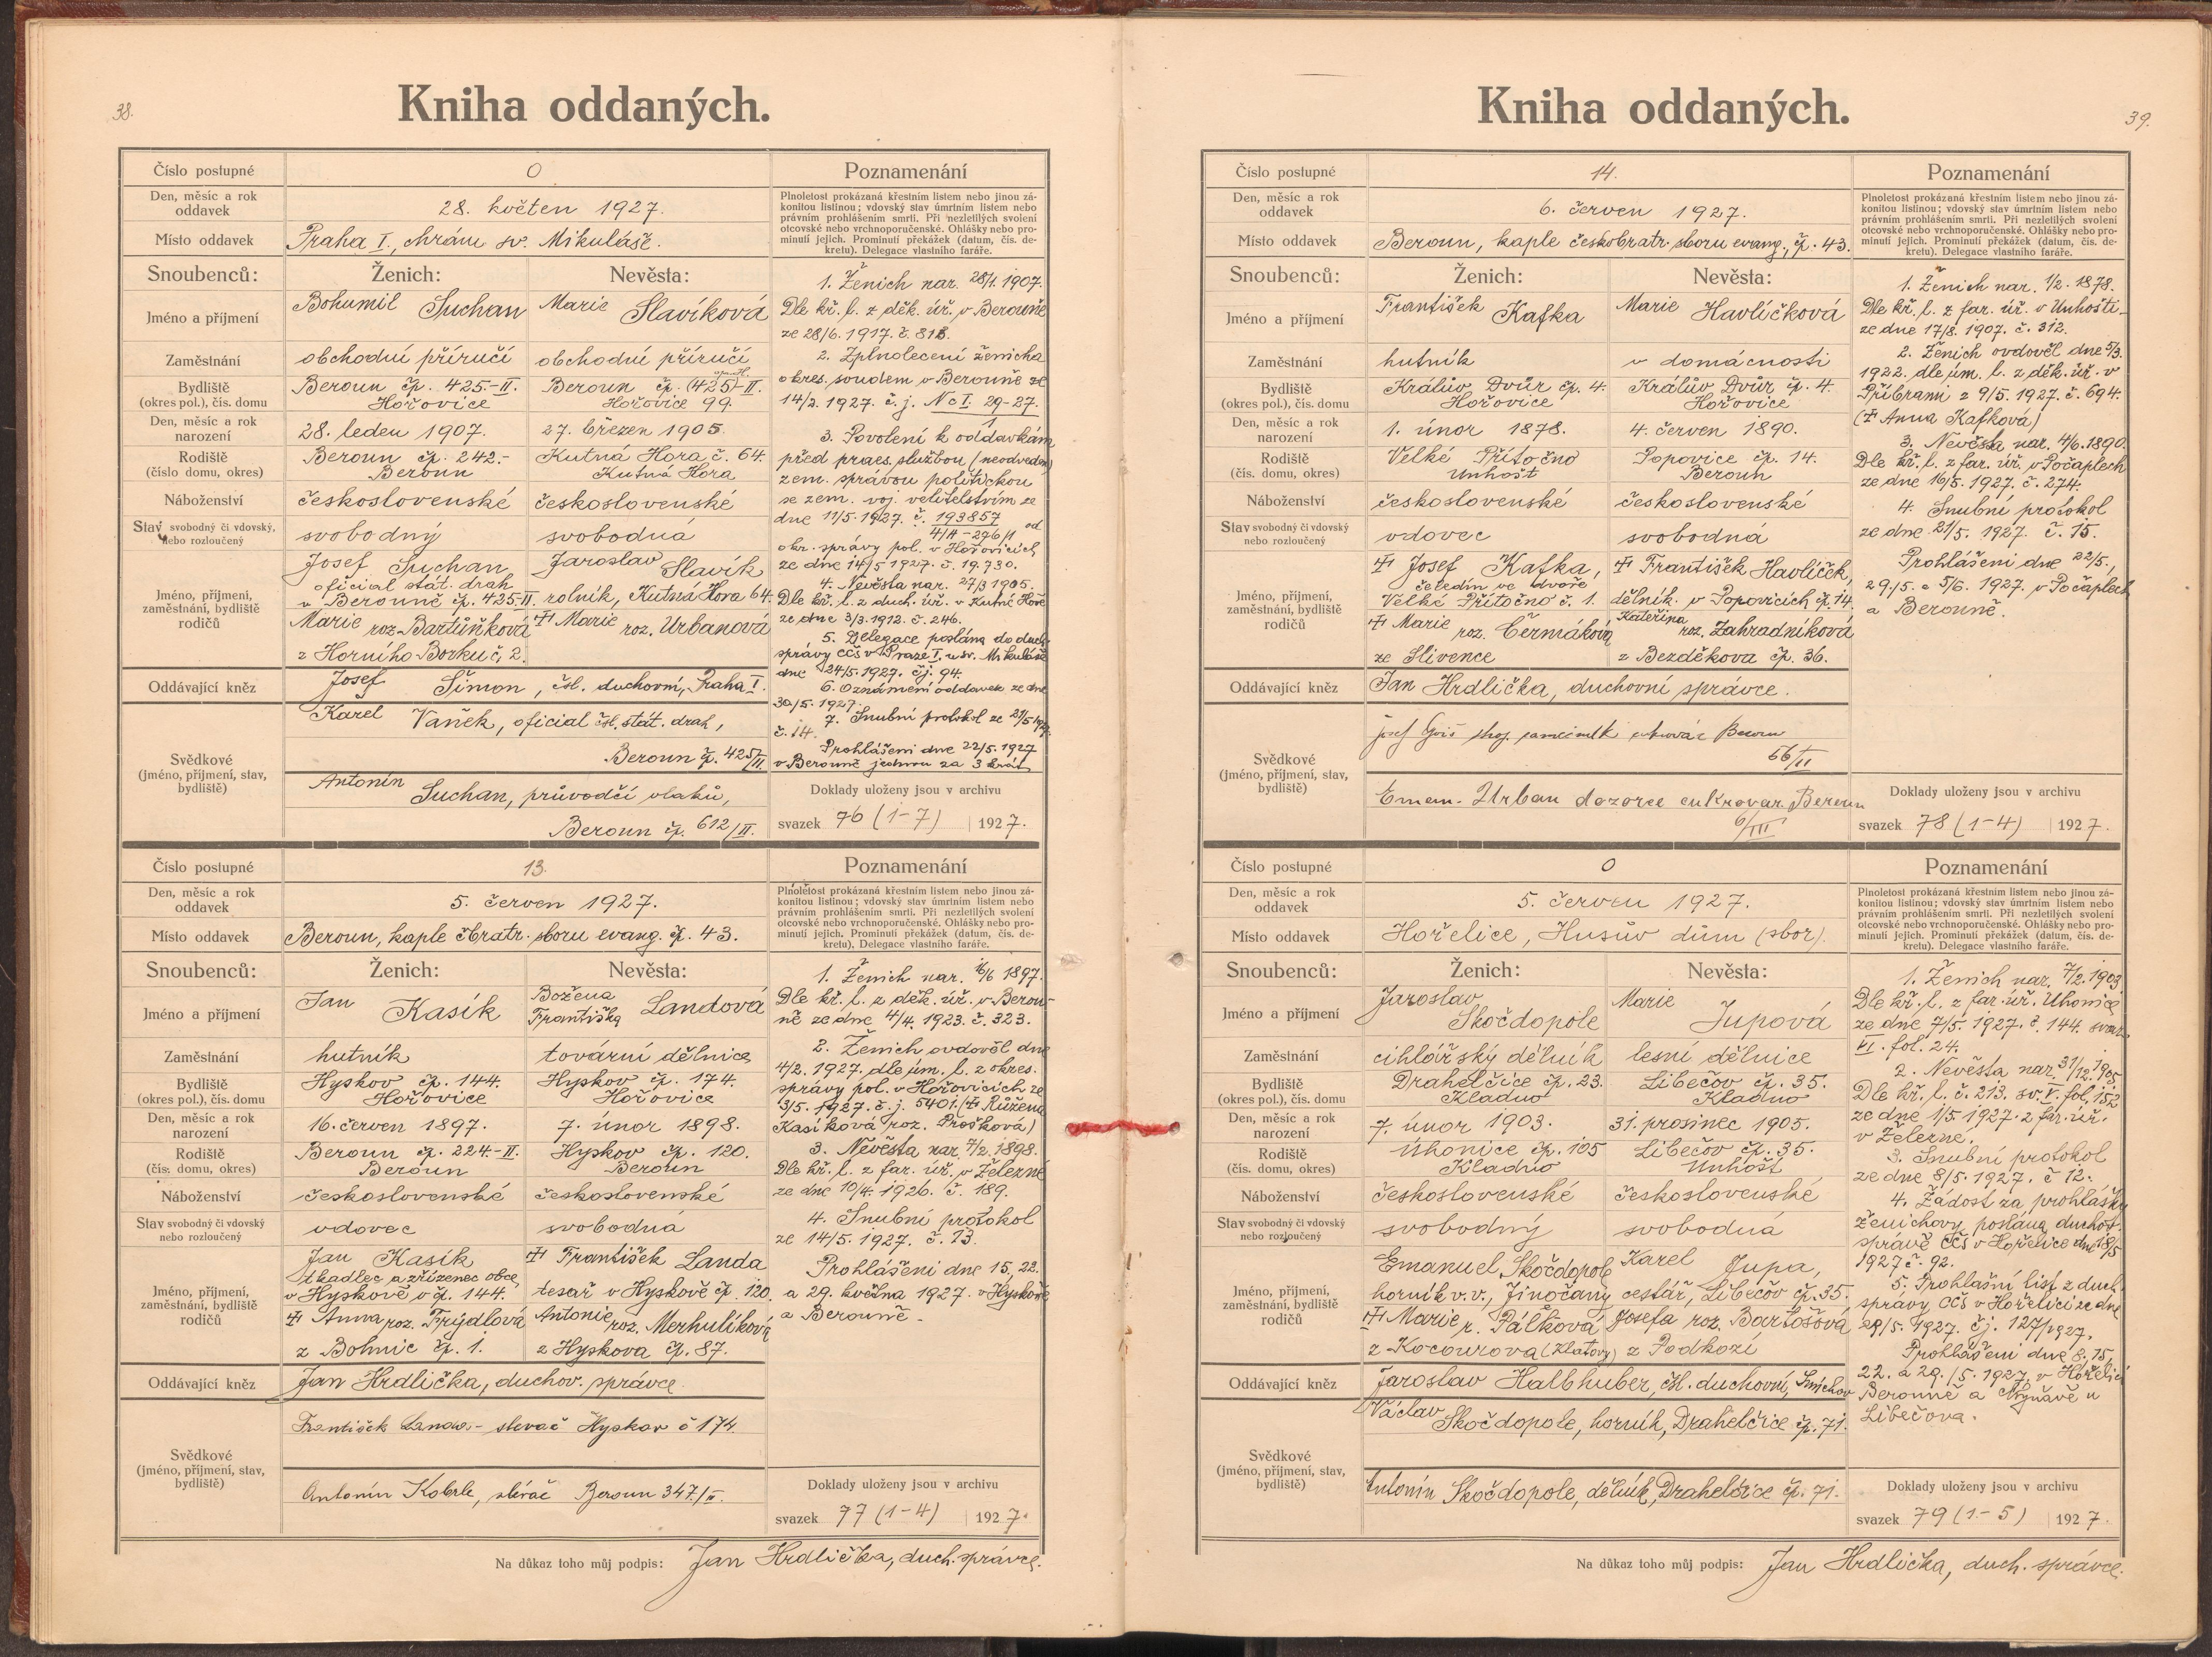 38.
Kniha oddaných.
Číslo postupné
0
Poznamenání
Den, měsíc a rok
oddavek
28. květen 1927.
Plnoletost prokázaná křestním listem nebo jinou zá-
konitou listinou; vdovský stav úmrtním listem nebo
právním prohlášením smrti. Při nezletilých svolení
otcovské nebo vrchnoporučenské. Ohlášky nebo pro-
minutí jejich. Prominutí překážek (datum, čís. de-
kretu). Delegace vlastního faráře.
Místo oddavek
Praha I., chrám sv. Mikuláše.
Snoubenců:
Ženich:
Nevěsta:
Jméno a příjmení
Bohumil Suchan
Marie Slavíková
Zaměstnání
obchodní příručí
obchodní příručí
Bydliště
(okres pol.), čís. domu
Beroun čp. 425.-II.
Hořovice
Beroun čp. (425)-II.
Hořovice 99.
Den, měsíc a rok
narození
28. leden 1907.
27. březen 1905.
Rodiště
(číslo domu, okres)
Beroun čp. 242.-
Beroun
Kutná Hora č. 64.
Kutná Hora
Náboženství
československé
československé
Stav svobodný či vdovský,
nebo rozloučený
svobodný
svobodná
Jméno, příjmení,
zaměstnání, bydliště
rodičů
Josef Suchan
oficial stát. drah
v Berouně čp. 425-II.
Marie roz. Bartůňková
z Horního Borku č. 2.
Jaroslav Slavík
rolník, Kutná Hora 64.
‡ Marie roz. Urbanová
Oddávající kněz
Josef Šimon, čsl. duchovní, Praha I.
Svědkové
(jméno, příjmení, stav,
bydliště)
Karel Vaněk, oficial čsl. stát. drah,
Beroun čp. 425/II.
Antonín
Suchan, průvodčí vlaků,
Beroun čp. 612/II.
1. Ženich nar. 28/1. 1907.
Dle kř. l. z děk. úř. v Berouně
ze 28/6. 1917. č. 818.
2. Zplnoletení ženicha
okres. soudem v Berouně ze
14/2. 1927. č. j. Nc I. 29-27.
1
3. Povolení k oddavkám
před praes. službou (neodveden)
zem. správou politickou
se zem. voj. velitelstvím ze
dne 11/5. 1927. č. 193857
4/A-296/1 od
okr. správy pol. v Hořovicích
ze dne 14/5 1927. č. 19.730.
4. Nevěsta nar. 27/3 1905.
Dle kř. l. z duch. úř. v Kutné Hoře
ze dne 3/3. 1912. č. 246.
5. Delegace poslána do duch.
správy CČS v Praze I. u sv. Mikuláše
dne 24/5. 1927. čj. 94.
6. Oznámení oddavek ze dne
30/5. 1927.
7. Snubní protokol ze 21/5 1927.
č. 14.
Prohlášeni dne 22/5. 1927
v Berouně jednou za 3 krát
Doklady uloženy jsou v archivu
svazek 76 (1-7) 1927.
Číslo postupné
13.
Poznamenání
Den, měsíc a rok
oddavek
5. červen 1927.
Plnoletost prokázaná křestním listem nebo jinou zá-
konitou listinou; vdovský stav úmrtním listem nebo
právním prohlášením smrti. Při nezletilých svolení
otcovské nebo vrchnoporučenské. Ohlášky nebo pro-
minutí jejich. Prominutí překážek (datum, čís. de-
kretu). Delegace vlastního faráře.
Místo oddavek
Beroun, kaple čbratr. sboru evang. čp. 43.
Snoubenců:
Ženich:
Nevěsta:
Jméno a příjmení
Jan Kasík
Božena
Františka Landová
Zaměstnání
hutník
tovární dělnice
Bydliště
(okres pol.), čís. domu
Hyskov čp. 144.
Hořovice
Hyskov čp. 174.
Hořovice
Den, měsíc a rok
narození
16. červen 1897.
7. únor 1898.
Rodiště
(čís. domu, okres)
Beroun čp. 224.-II.
Beroun
Hyskov čp. 120.
Beroun
Náboženství
československé
československé
Stav svobodný či vdovský
nebo rozloučený
vdovec
svobodná
Jméno, příjmení,
zaměstnání, bydliště
rodičů
Jan Kasík
tkadlec a zřízenec obce,
v Hyskově v čp. 144.
‡ Anna roz. Frýdlová
z Bohnic čp. 1.
‡ František Landa
tesař v Hyskově čp. 120.
Antonie roz. Merhulíková
z Hyskova čp. 87.
Oddávající kněz
Jan Hrdlička, duchov. správce.
Svědkové
(jméno, příjmení, stav,
bydliště)
František Landa - slevač Hyskov č 174.
Antonín Koberle, slévač Beroun 347./II.
1. Ženich nar. 16/6 1897.
Dle kř. l. z děk. úř. v Berou-
ně ze dne 4/4. 1923. č. 323.
2. Ženich ovdověl dne
4/2. 1927. dle úm. l. z okres.
správy pol. v Hořovicích ze
3/5. 1927. č. j. 5401. (‡ Růžena
Kasíková roz. Prošková)
3. Nevěsta nar. 7/2. 1898.
Dle kř. l. z far. úř. v Železné
ze dne 10/4. 1926. č. 189.
4. Snubní protokol
ze 14/5. 1927. č. 13.
Prohlášeni dne 15, 22.
a 29. května 1927. v Hyskově
a Berouně.
Doklady uloženy jsou v archivu
svazek 77 (1-4) 1927.
Na důkaz toho můj podpis: Jan Hrdlička, duch. správce.
39.
Kniha oddaných.
Číslo postupné
14.
Poznamenání
Den, měsíc a rok
oddavek
6. červen 1927.
Plnoletost prokázaná křestním listem nebo jinou zá-
konitou listinou; vdovský stav úmrtním listem nebo
právním prohlášením smrti. Při nezletilých svolení
otcovské nebo vrchnoporučenské. Ohlášky nebo pro-
minutí jejich. Prominutí překážek (datum, čís. de-
kretu). Delegace vlastního faráře.
Místo oddavek
Beroun, kaple českobratr. sboru evang., čp. 43.
Snoubenců:
Ženich:
Nevěsta:
Jméno a příjmení
František Kafka
Marie Havlíčková
Zaměstnání
hutník
v domácnosti
Bydliště
(okres pol.), čís. domu
Králův Dvůr čp. 4.
Hořovice
Králův Dvůr čp. 4.
Hořovice
Den, měsíc a rok
narození
1. únor 1878.
4. červen 1890.
Rodiště
(čís. domu, okres)
Velké Přítočno
Unhošt
Popovice čp. 14.
Beroun
Náboženství
československé
československé
Stav svobodný či vdovský
nebo rozloučený
vdovec
svobodná
Jméno, příjmení,
zaměstnání, bydliště
rodičů
‡ Josef Kafka,
čeledín ve dvoře
Velké Přítočno č. 1.
‡ Marie roz. Čermáková
ze Slivence
‡ František Havlíček,
dělník v Popovicích čp. 14.
Kateřina roz. Zahradníková
z Bezděkova čp. 36.
Oddávající kněz
Jan Hrdlička, duchovní správce.
Svědkové
(jméno, příjmení, stav,
bydliště)
Beroun
66/II
Emem. Urban dozorce cukrovar. Beroun
6/III
1. Ženich nar. 1/2. 1878.
Dle kř. l. z far. úř. v Unhošti
ze dne 17/8. 1907. č. 312.
2. Ženich ovdověl dne 5/3.
1922. dle úm. l. z děk. úř. v
Příbrami z 9/5. 1927. č. 694.
(‡ Anna Kafková)
3. Nevěsta nar. 4/6. 1890.
Dle kř. l. z far. úř. v Počaplech
ze dne 16/5. 1927. č. 274.
4. Snubní protokol
ze dne 21/5. 1927. č. 15.
Prohlášeni dne 22/5.,
29./5. a 5/6. 1927. v Počaplech
a Berouně.
Doklady uloženy jsou v archivu
svazek 78 (1-4) 1927.
Číslo postupné
0
Poznamenání
Den, měsíc a rok
oddavek
5. červen 1927.
Plnoletost prokázaná křestním listem nebo jinou zá-
konitou listinou; vdovský stav úmrtním listem nebo
právním prohlášením smrti. Při nezletilých svolení
otcovské nebo vrchnoporučenské. Ohlášky nebo pro-
minutí jejich. Prominutí překážek (datum, čís. de-
kretu). Delegace vlastního faráře.
Místo oddavek
Hořelice, Husův dům (sbor).
Snoubenců:
Ženich:
Nevěsta:
Jméno a příjmení
Jaroslav
Skočdopole
Marie
Jupová
Zaměstnání
cihlářský dělník
lesní dělnice
Bydliště
(okres pol.), čís. domu
Drahelčice čp. 23.
Kladno
Libečov čp. 35.
Kladno
Den, měsíc a rok
narození
7. únor 1903.
31. prosinec 1905.
Rodiště
(čís. domu, okres)
Úhonice čp. 105
Kladno
Libečov čp. 35.
Unhošt
Náboženství
československé
československé
Stav svobodný či vdovský
nebo rozloučený
svobodný
svobodná
Jméno, příjmení,
zaměstnání, bydliště
rodičů
Emanuel Skočdopole
horník v. v., Jinočany
‡ Marie r. Pálková
z Kocourova (Klatovy)
Karel Jupa,
cestář, Libečov čp. 35.
Josefa roz. Bartošová
z Podkozí
Oddávající kněz
Jaroslav Halbhuber, čsl. duchovní, Smíchov
Svědkové
(jméno, příjmení, stav,
bydliště)
Václav
Skočdopole, horník, Drahelčice čp. 71.
Antonín Skočdopole, dělník, Drahelčice čp. 71.
1. Ženich nar. 7/2. 1903
Dle kř. l. z far. úř. Uhonice
ze dne 7/5. 1927. č. 144. svaz.
VI. fol. 24.
2. Nevěsta nar. 31/12. 1905.
Dle kř. l. č. 213. sv. V. fol. 152
ze dne 1/5 1927. z far. úř.
v Železné.
3. Snubní protokol
ze dne 8/5. 1927. č 12.
4. Žádost za prohlášky
ženichovy poslána duchov.
správě CČS v Hořelice dne 18/5
1927 č. 92.
5. Prohlašní list z duch.
správy CČS v Hořelici ze dne
29/5. 1927. čj. 127/1927.
Prohlášeni dne 8. 15.
22. a 29. /5. 1927. v Hořelici
Berouně a Chyňavě u
Libečova.
Doklady uloženy jsou v archivu
svazek 79 (1.-5) 1927.
Na důkaz toho můj podpis: Jan Hrdlička, duch. správce.